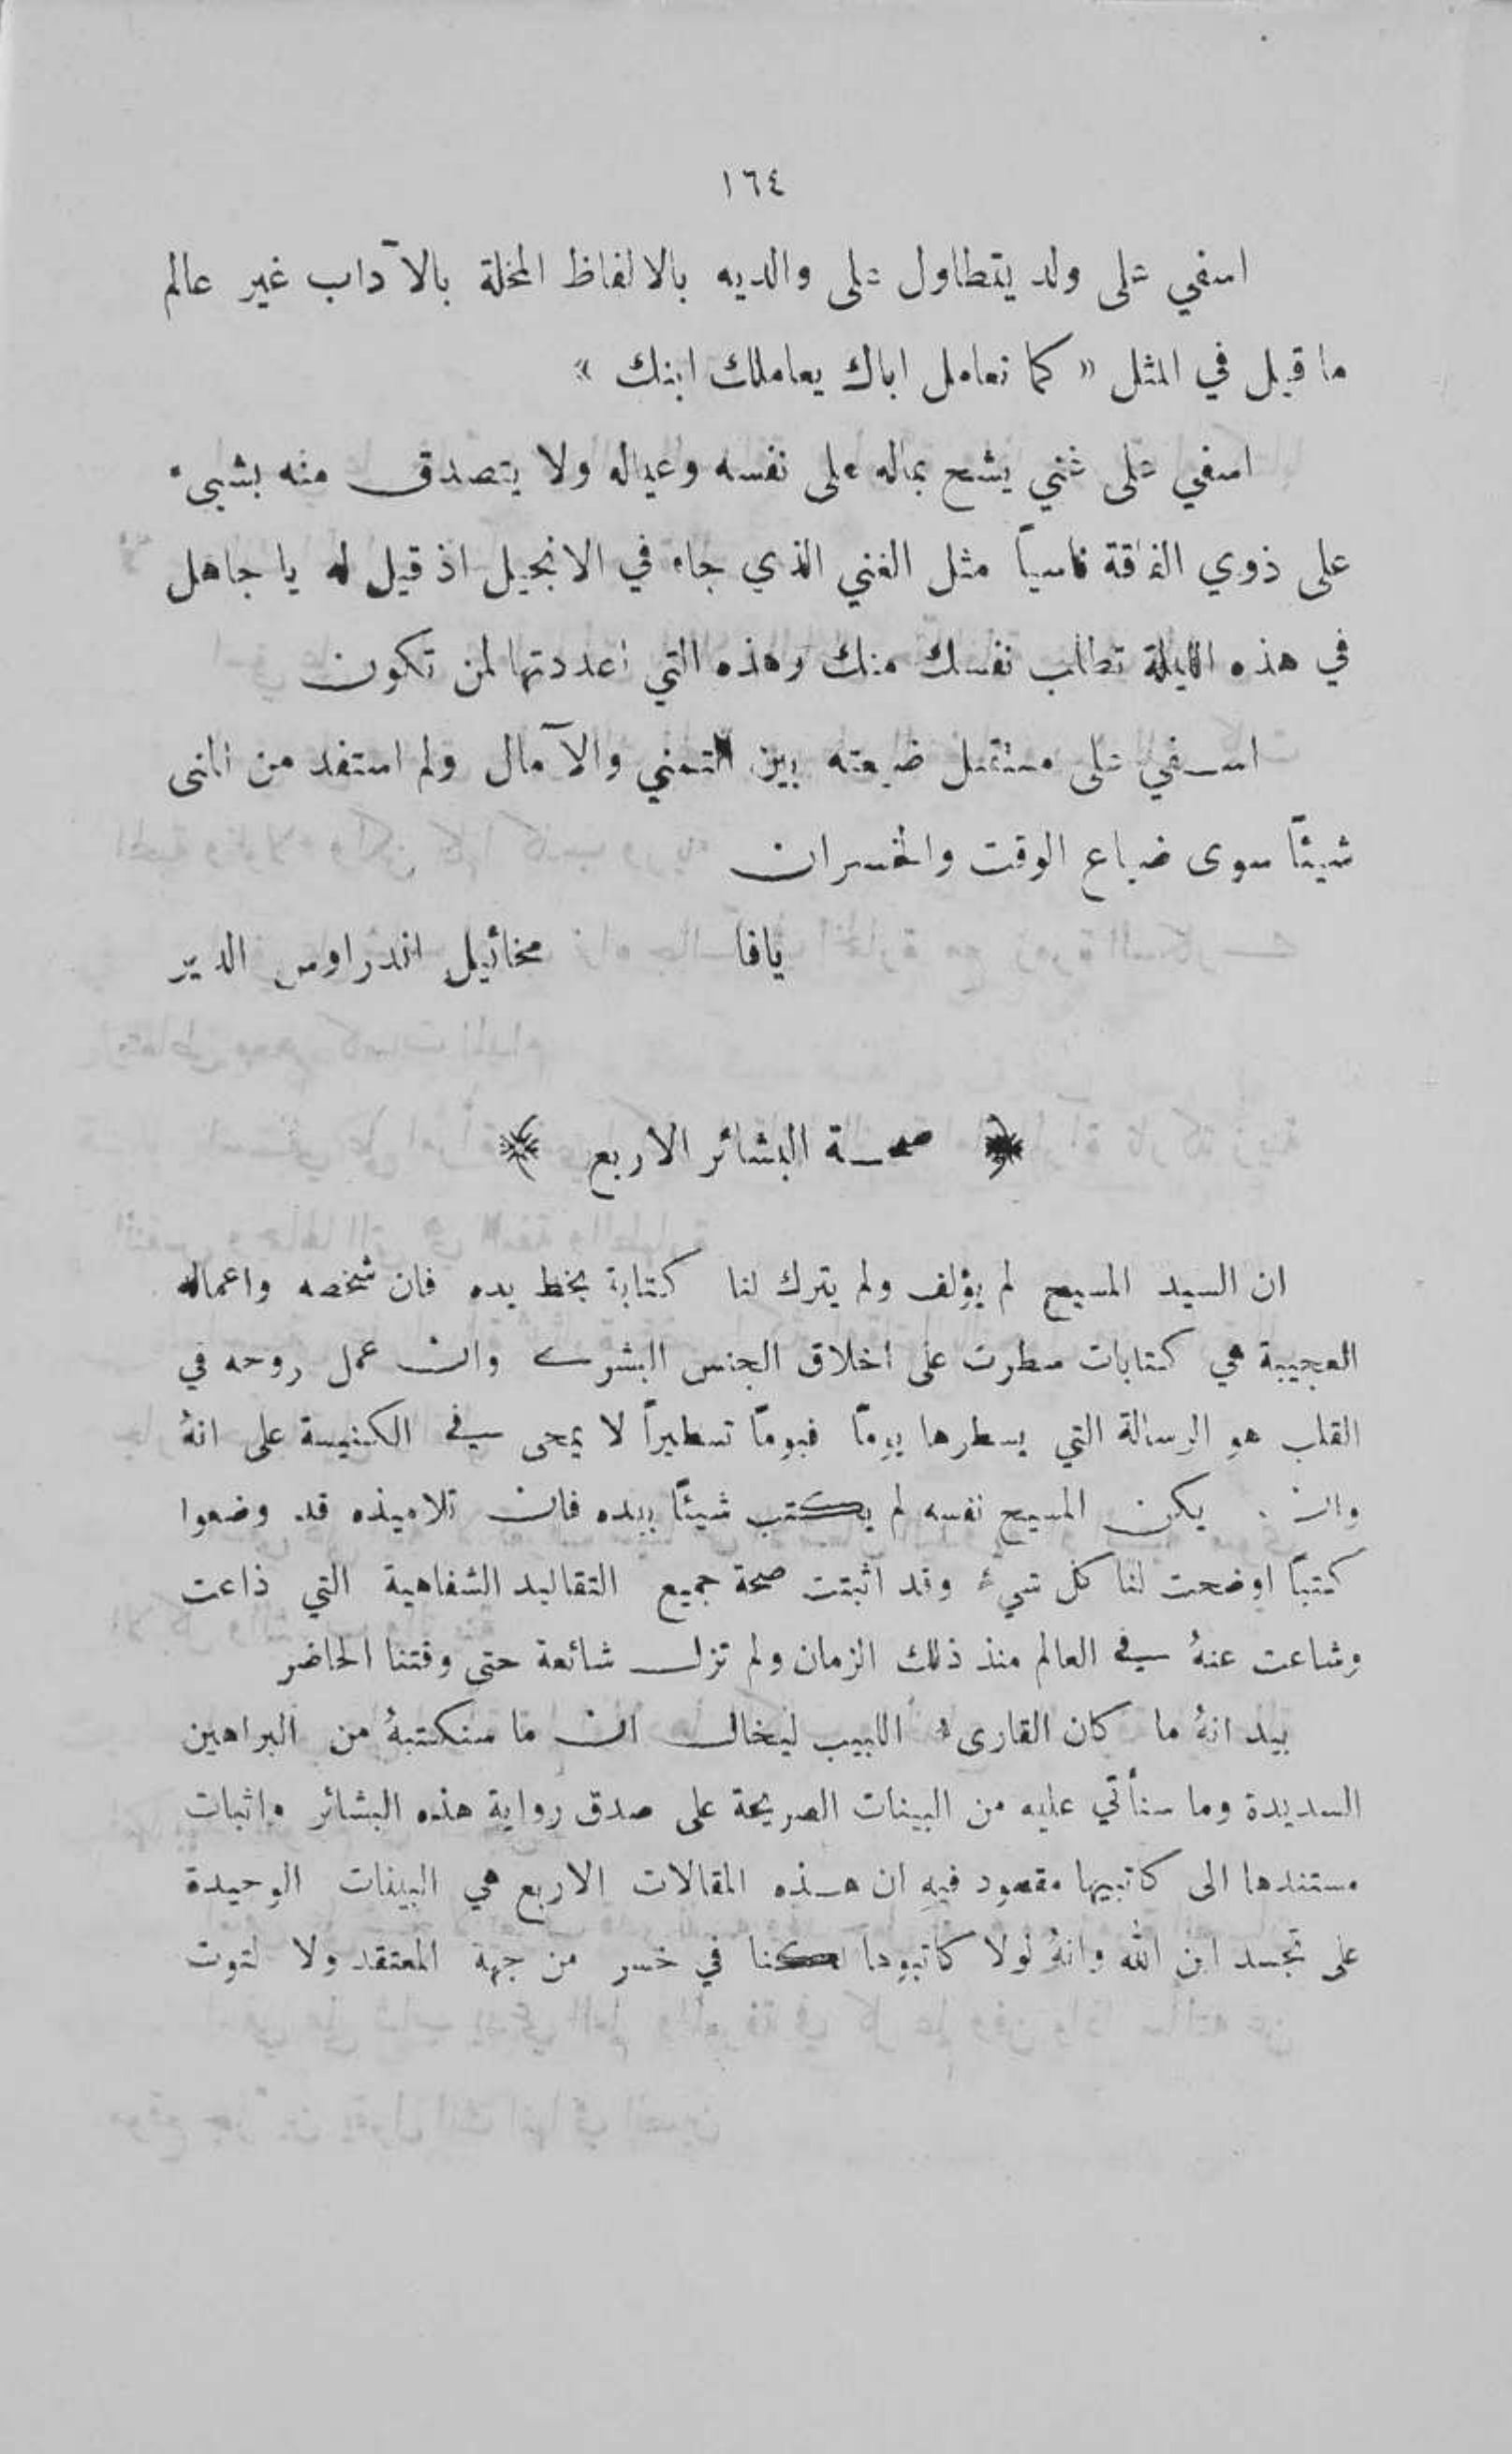 ١٦٤
اسفي على ولد يتطاول على والديه بالالفاظ المخلة بالآداب غير عالم
ما قيل في المثل « كما تعامل اباك يعاملك ابنك »
اسفي على غني يشح بماله على نفسه وعياله ولا يتصدق منه بشيء
على ذوي الفاقة ناسياً مثل الغني الذي جاء في الانجيل اذ قيل له يا جاهل
في هذه الليلة تطلب نفسك منك وهذه التي اعددتها لمن تكون
اسفي على مستقبل ضيعته بين التمني والآمال ولم استفد من المنى
شيئاً سوى ضياع الوقت والخسران
يافا مخائيل اندراوس الديّر
﴿ صحة البشائر الاربع ﴾
ان السيد المسيح لم يؤلف ولم يترك لنا كتابة بخط يده فان شخصه واعماله
العجيبة هي كتابات سطرت على اخلاق الجنس البشري وان عمل روحه في
القلب هو الرسالة التي يسطرها يومًا فيومًا تسطيراً لا يمحى في الكنيسة على انهُ
وان يكن المسيح نفسه لم يكتب شيئًا بيده فان تلاميذه قد وضعوا
كتبًا اوضحت لنا كل شيء وقد اثبتت صحة جميع التقاليد الشفاهية التي ذاعت
وشاعت عنهُ في العالم منذ ذلك الزمان ولم تزل شائعة حتى وقتنا الحاضر
بيد انهُ ما كان القارىء اللبيب ليخال ان ما سنكتبهُ من البراهين
السديدة وما سنأتي عليه من البينات الصريحة على صدق رواية هذه البشائر واثبات
مستندها الى كاتبيها مقصود فيهِ ان هذه المقالات الاربع هي البينات الوحيدة
على تجسد ابن الله وانهُ لولا كاتبوها لكنا في خسر من جهة المعتقد ولا لتوت